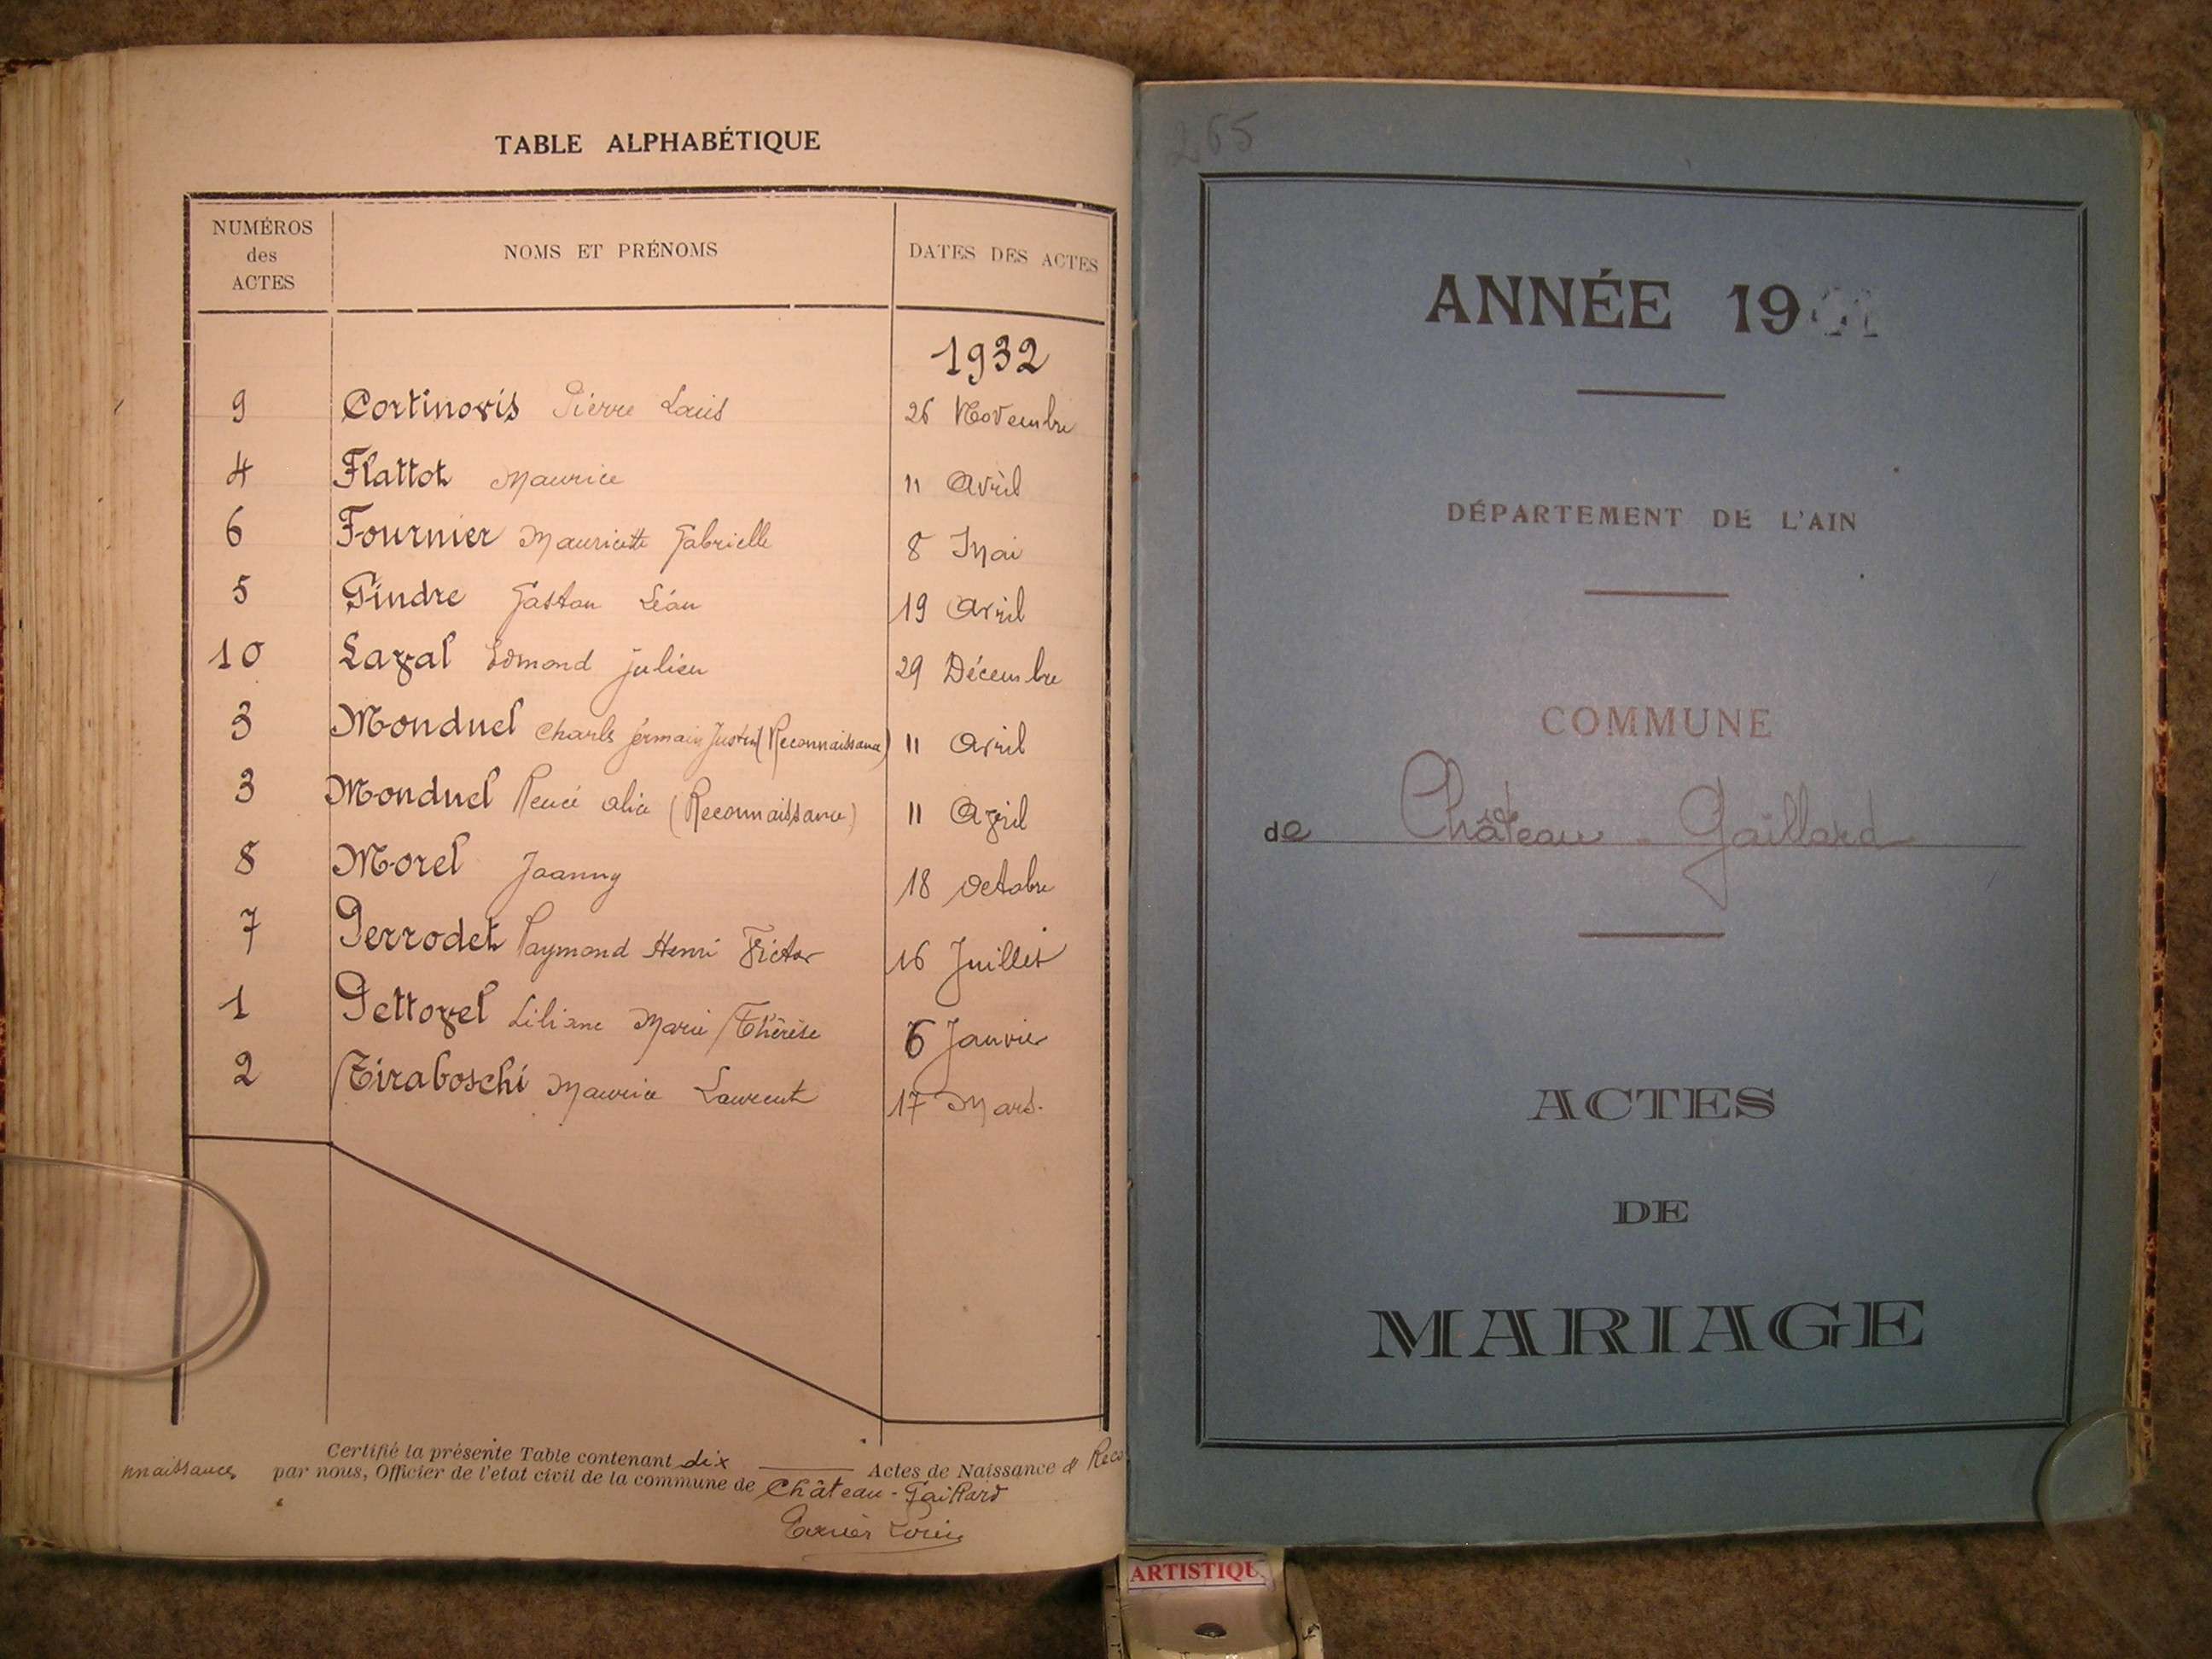 TABLE ALPHABÉTIQUE
NUMÉROS des ACTES NOMS ET PRÉNOMS DATES DES ACTES
1932
9 Cortinovis Pierre Louis 26 Novembre
4 Flattot Maurice 11 Avril
6 Fournier Mauricette Gabrielle 8 Mai
5 Gindre Gaston Léon 19 Avril
10 Laval Edmond Julien 29 Décembre
3 Monduel Charles Germain Justin (Reconnaissance) 11 Avril
3 Monduel Renée Alice (Reconnaissance) 11 Avril
8 Morel Joanny 18 Octobre
7 Perrodet Raymond Henri Victor 16 Juillet
1 Pettovel Liliane Marie Thérèse 6 Janvier
2 Tiraboschi Maurice Laurent 17 Mars.
Certifié la présente Table contenant dix Actes de Naissance et Reco
nnaissances par nous, Officier de l'état civil de la commune de Château-Gaillard
265
ANNÉE 19
DÉPARTEMENT DE L'AIN
COMMUNE
de Château-Gaillard
ACTES
DE
MARIAGE
ARTISTIQU